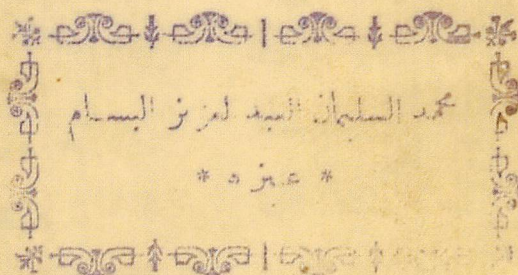 محمد السليمان العبد لعزيز البسام
* عنيزه *